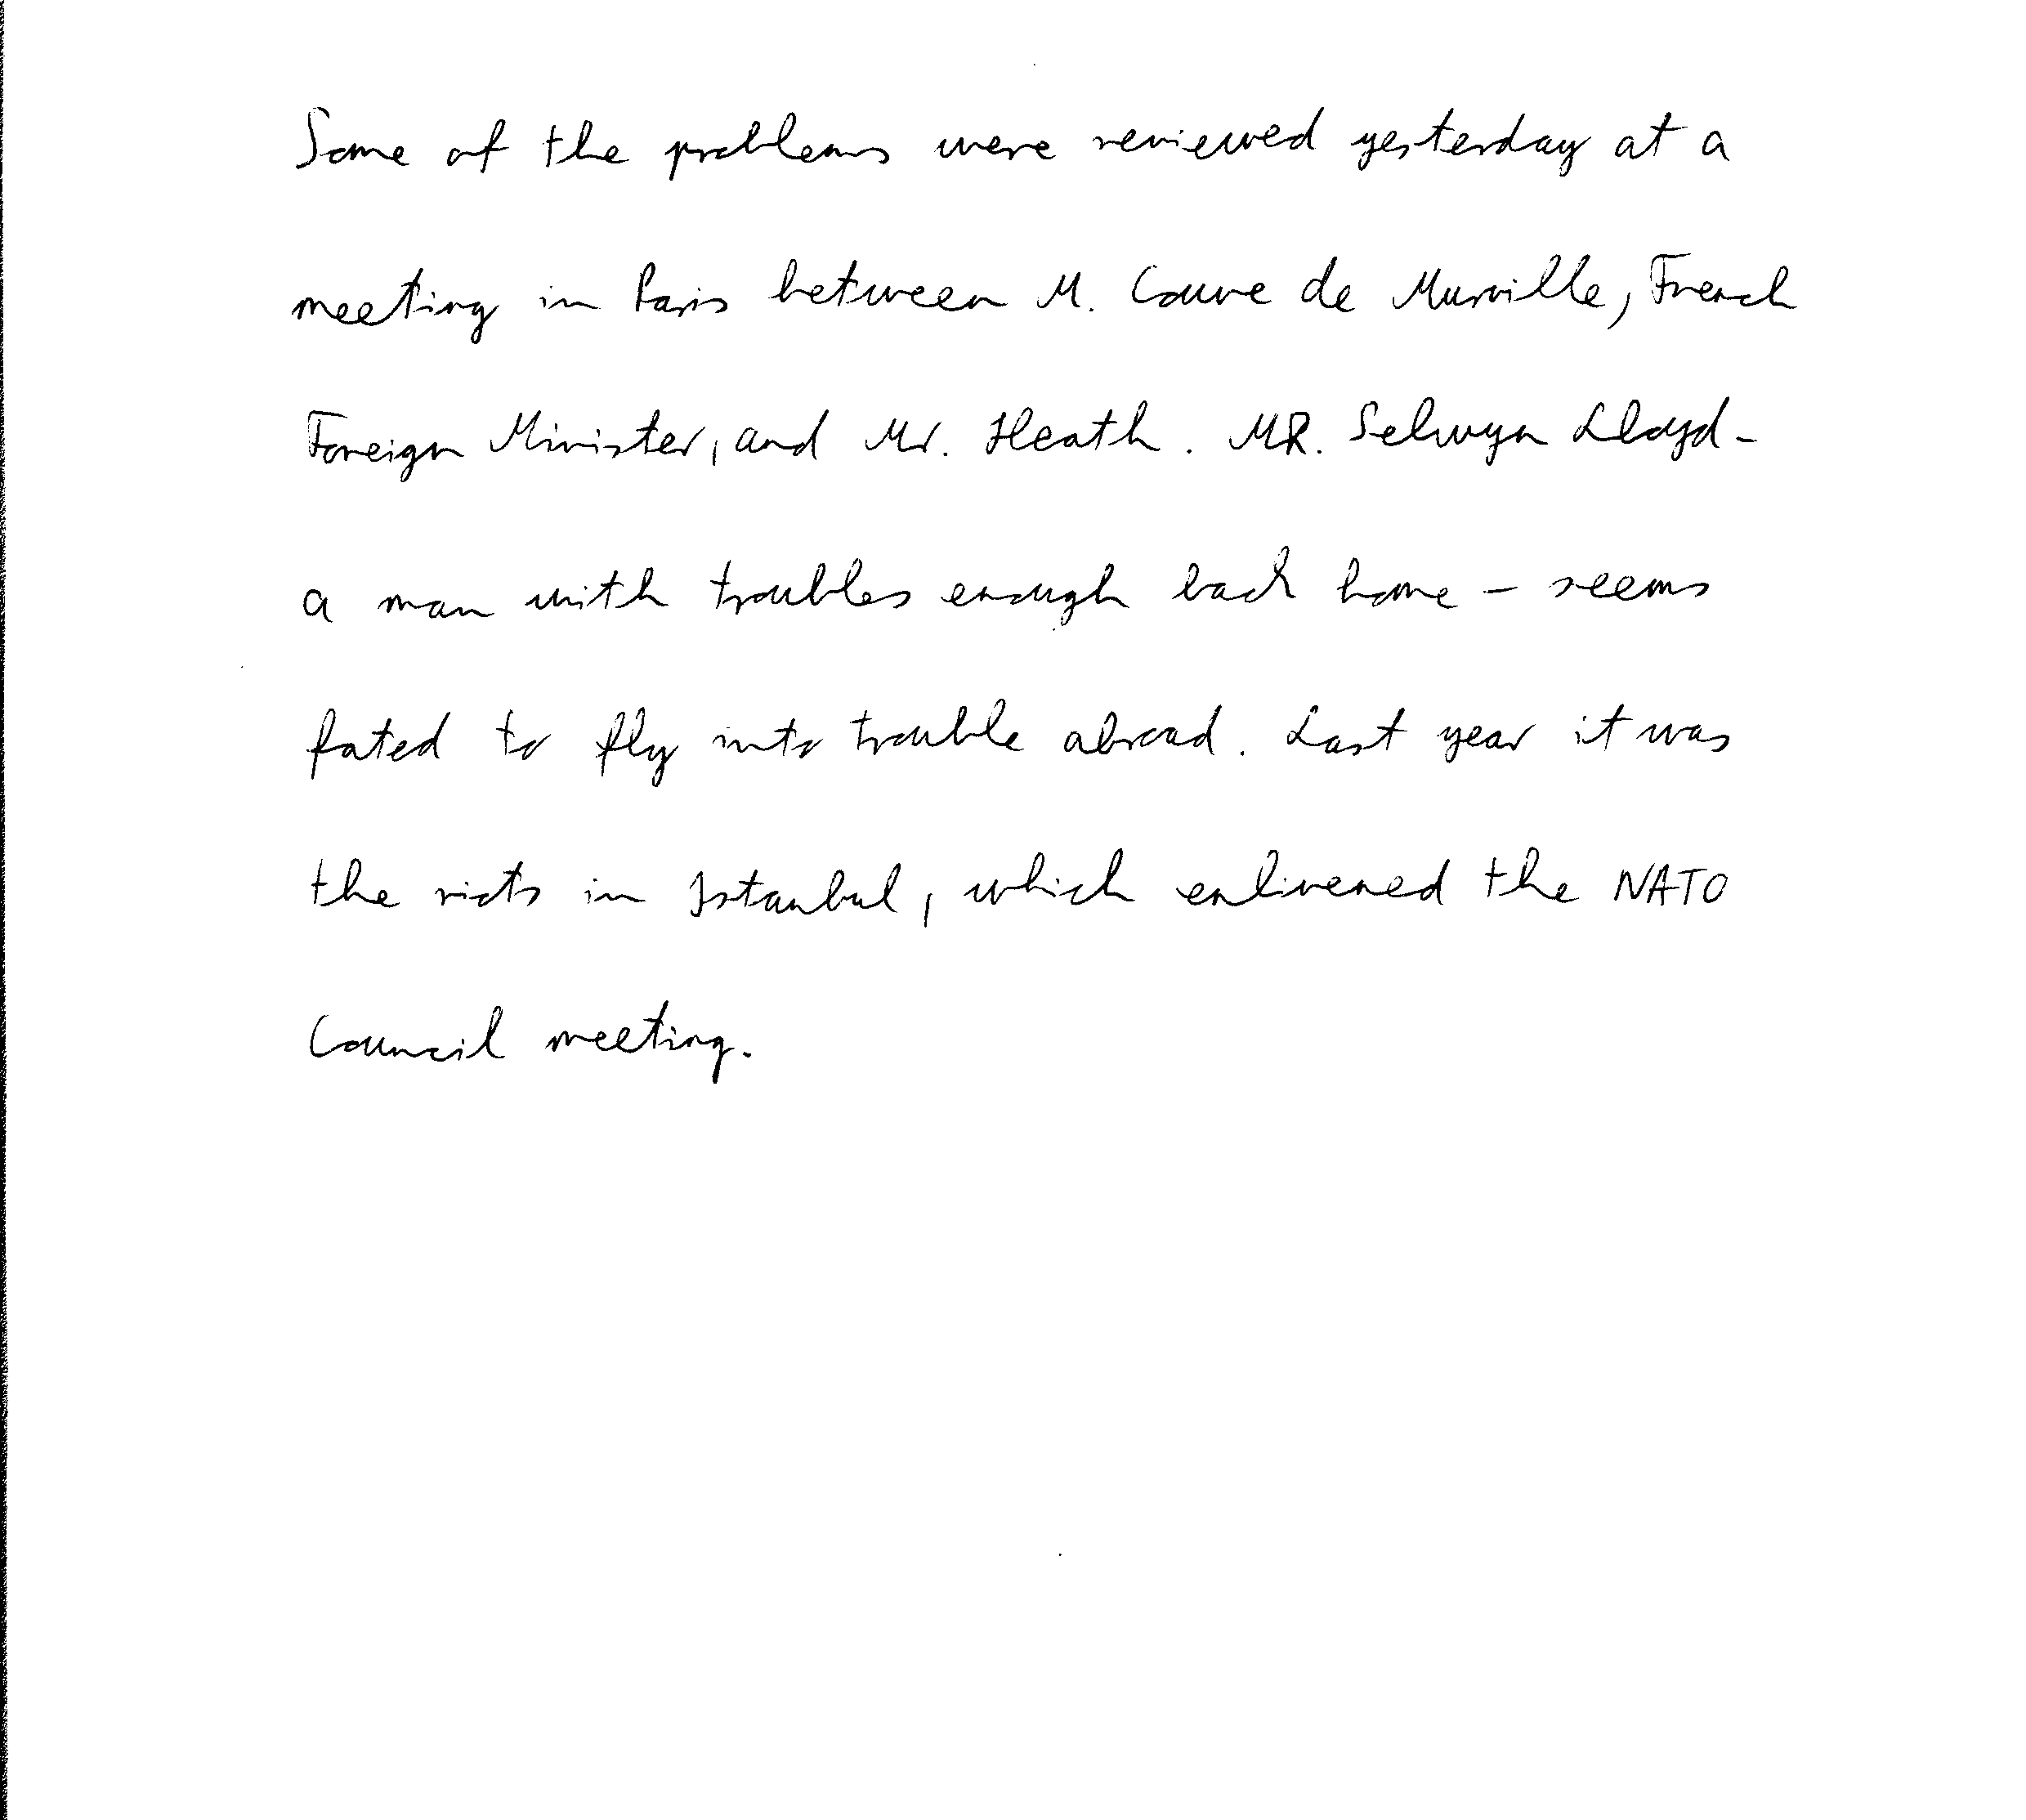 Some of the problems were reviewed yesterday at a
meeting in Paris between M. Couve de Murville, French
Foreign Minister, and Mr. Heath. MR. Selwyn Lloyd-
a man with troubles enough back home - seems
fated to fly into trouble abroad. Last year it was
the riots in Istanbul, which enlivened the NATO
Council meeting.